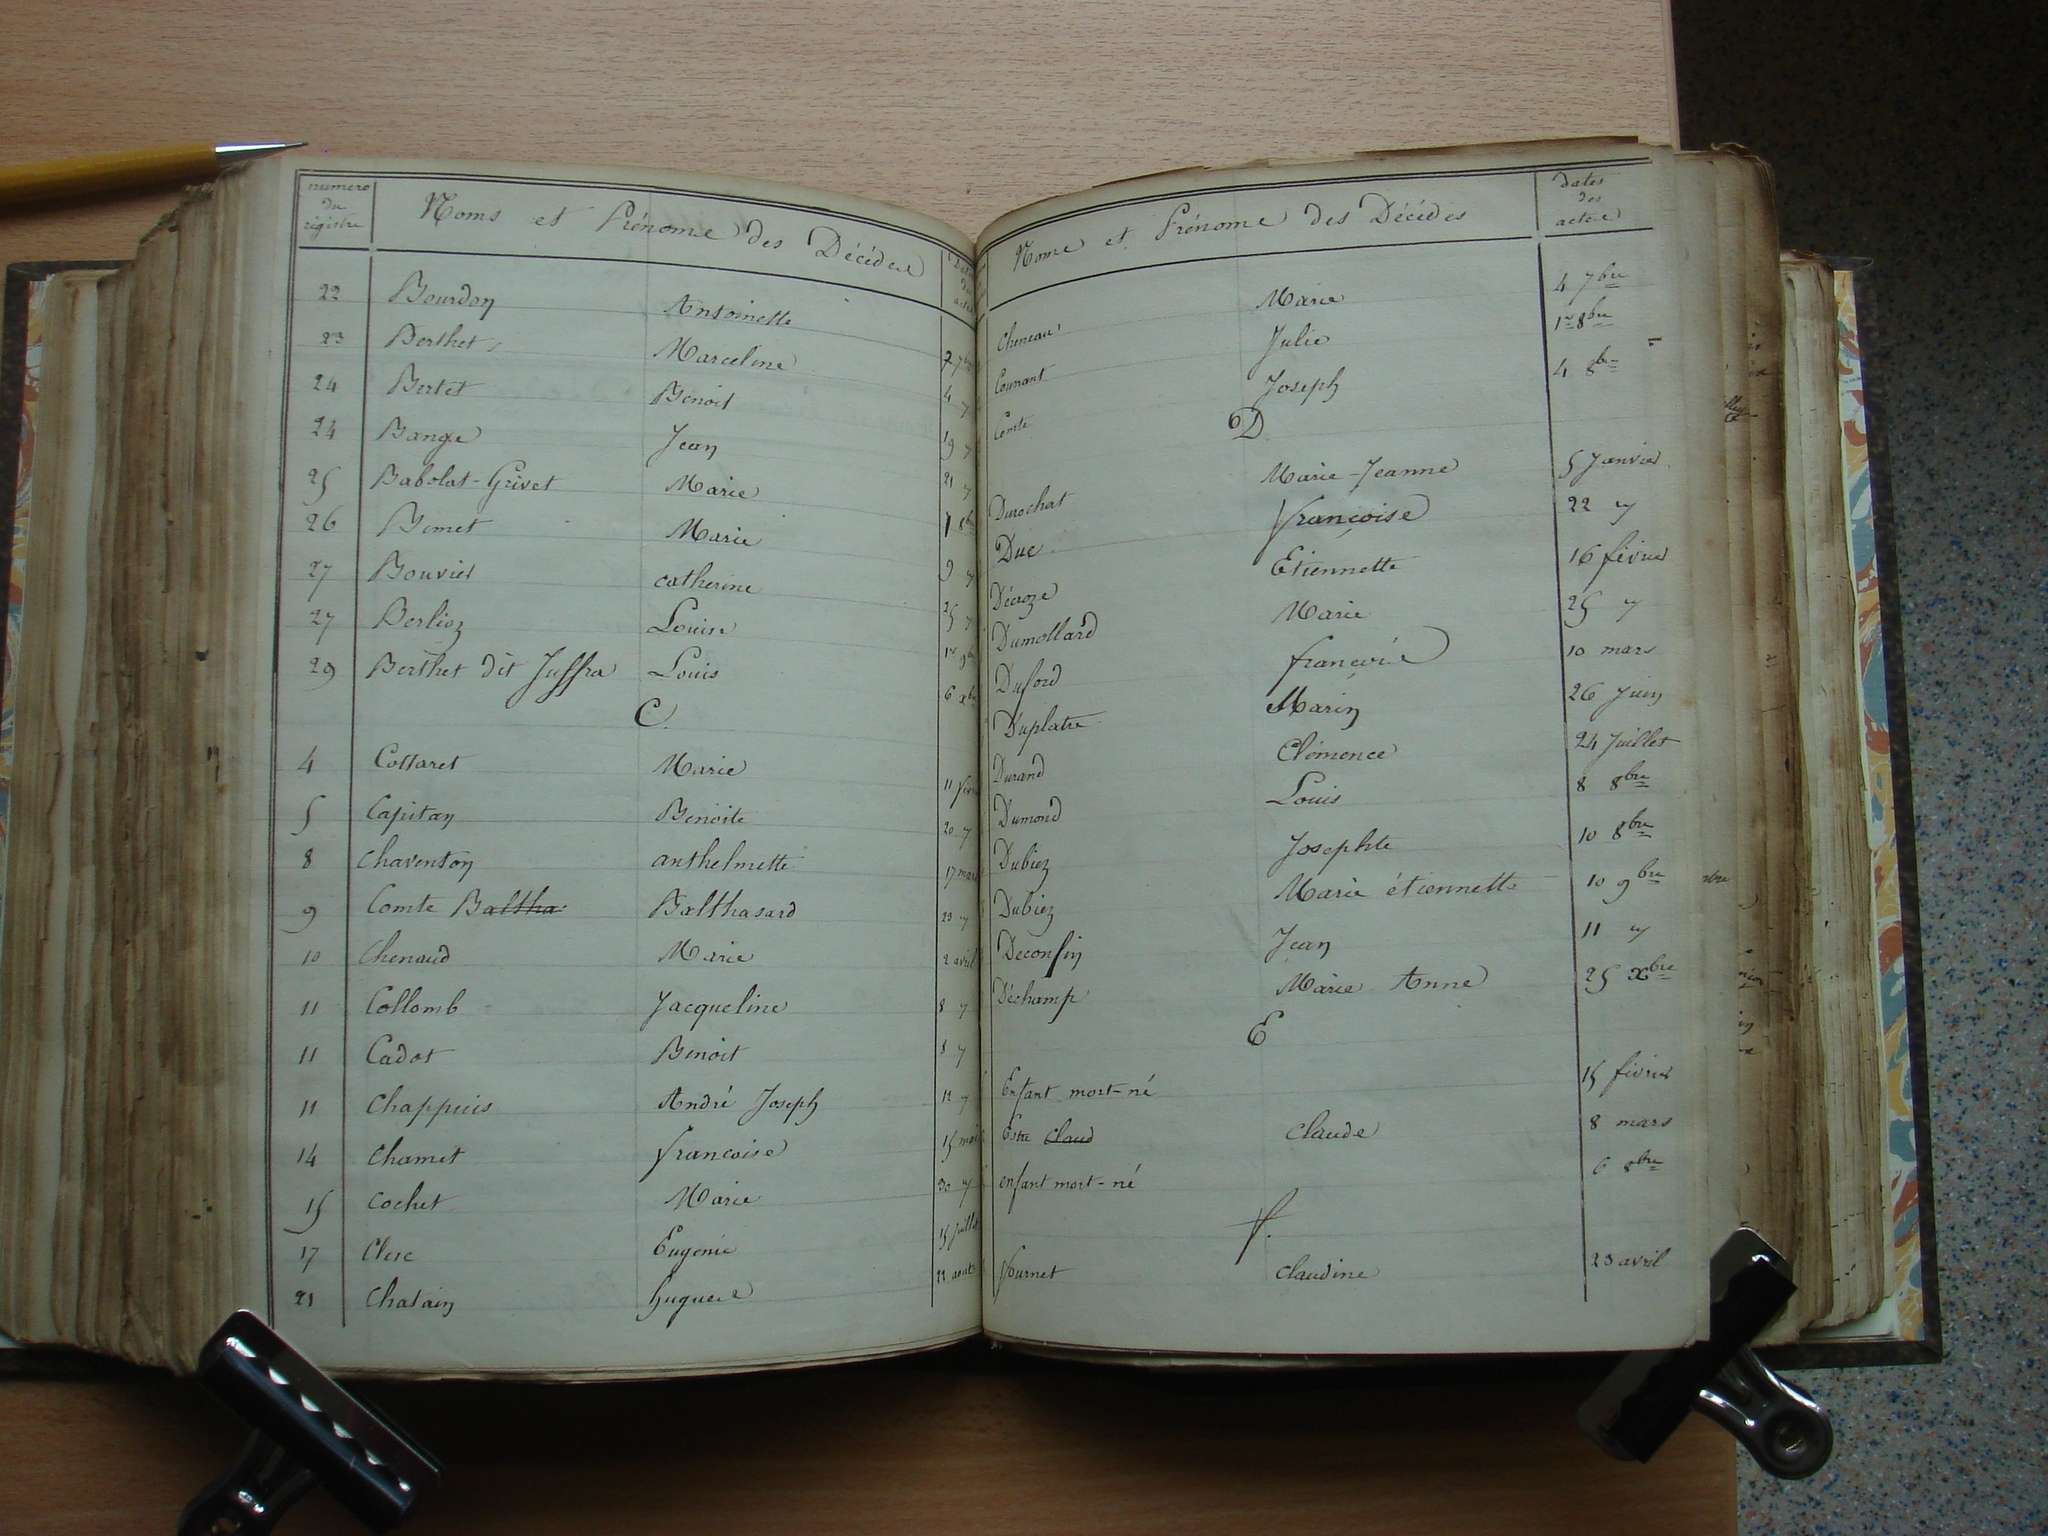 numero du registre Noms et Prénoms des Décédés
22 Bourdon Antoinette
23 Berthet Marceline 7 7bre
24 Bertet Benoit 4 "
24 Bange Jean 19 "
25 Babolat-Grivet Marie 21 "
26 Bomet Marie 7 8bre
27 Bouvier catherine 9 "
27 Berlioz Louise 25 "
29 Berthet dit Juffra Louis 1er 9bre
6 xbre
C.
4 Collaret Marie
5 Capitan Benoite 11 février
8 chaventon anthelmette 20 "
9 Comte Baltha Balthasard 17 mars
10 Chenaud Marie 23 "
11 Collomb Jacqueline 2 avril
11 Cadot Benoit 8 "
11 Chappuis André Joseph 8 "
14 Chamet françoise 12 "
15 Cochet Marie 15 mai
17 Clerc Eugenie 30 "
21 Chatain hugues 15 Juillet
22 aout
Noms et Prénoms des Décédés dates des actes
Cheneau Marie 4 7bre
Counant Julie 1er 8bre
Comte Joseph 4 8bre
D
Durochat Marie-Jeanne 5 Janvier
Duc françoise 22 "
Décroze Etiennette 16 février
Dumollard Marie 25 "
Duford francois 10 mars
Duplatre Marin 26 Juin
Durand Clémence 24 Juillet
Dumond Louis 8 8bre
Dubiez Josephte 10 8bre
Dubiez Marie étiennette 10 9bre
Deconfin Jean 11 "
Déchamp Marie Anne 25 xbre
E
Enfant mort-né 15 février
Estre Claud claude 8 mars
enfant mort-né 6 8bre
f.
fournet claudine 23 avril